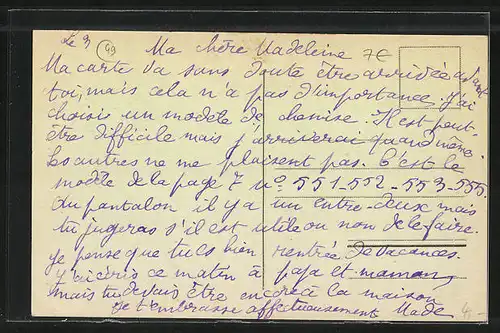 Le 3 (49) Ma chère Madeleine 7€
Ma carte va sans doute être arrivée avant
toi, mais cela n'a pas d'importance. J'ai
choisi un modèle de chemise. Il est peut-
être difficile mais j'arriverai quand même.
Les autres ne me plaisent pas. C'est le
modèle de la page 7 nº 551-552-553-555
Au pantalon il y a un entre-deux mais
tu jugeras s'il est utile ou non de le faire.
Je pense que tu es bien rentrée de vacances.
J'écris ce matin à papa et maman,
mais tu dois être encore à la maison
Je t'embrasse affectueusement Made
4.-